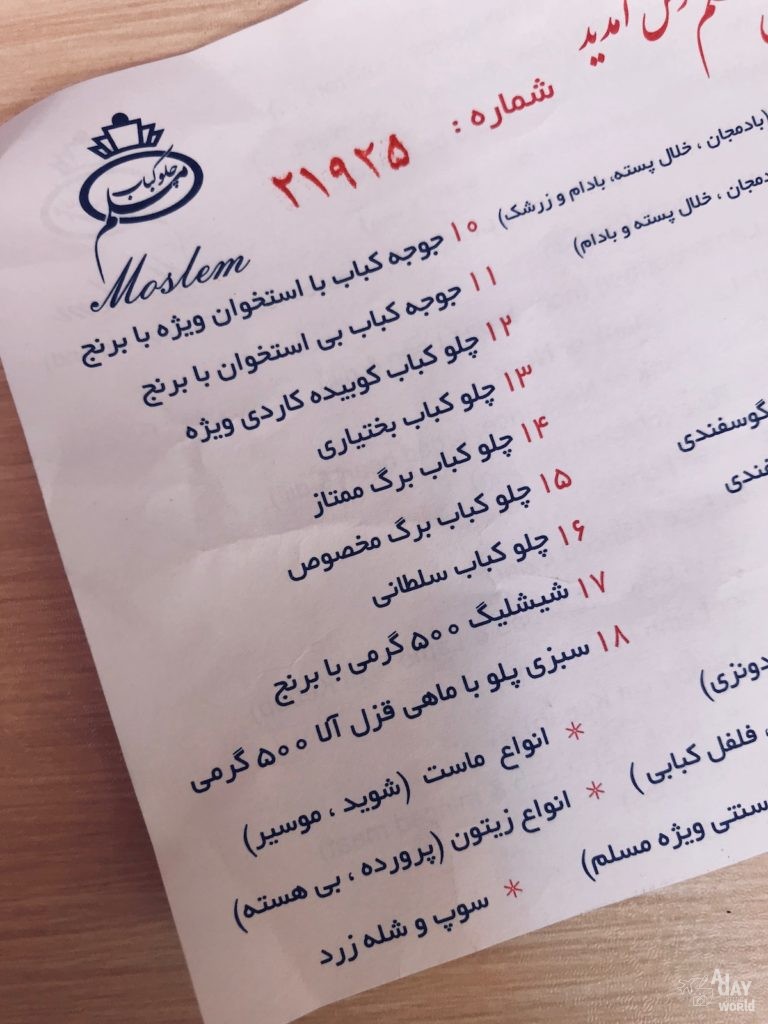 آمدید
شماره : ۲۱۹۲۵
چلو کباب
مسلم
Moslem
(بادمجان ، خلال پسته، بادام و زرشک)
۱۰ جوجه کباب با استخوان ویژه با برنج
خلال پسته و بادام)
۱۱ جوجه کباب بی استخوان با برنج
۱۲ چلو کباب کوبیده کاردی ویژه
۱۳ چلو کباب بختیاری
گوسفندی
۱۴ چلو کباب برگ ممتاز
۱۵ چلو کباب برگ مخصوص
۱۶ چلو کباب سلطانی
۱۷ شیشلیگ ۵۰۰ گرمی با برنج
۱۸ سبزی پلو با ماهی قزل آلا ۵۰۰ گرمی
* انواع ماست (شوید ، موسیر)
فلفل کبابی )
* انواع زیتون (پرورده ، بی هسته)
سنتی ویژه مسلم)
* سوپ و شله زرد
A DAY world